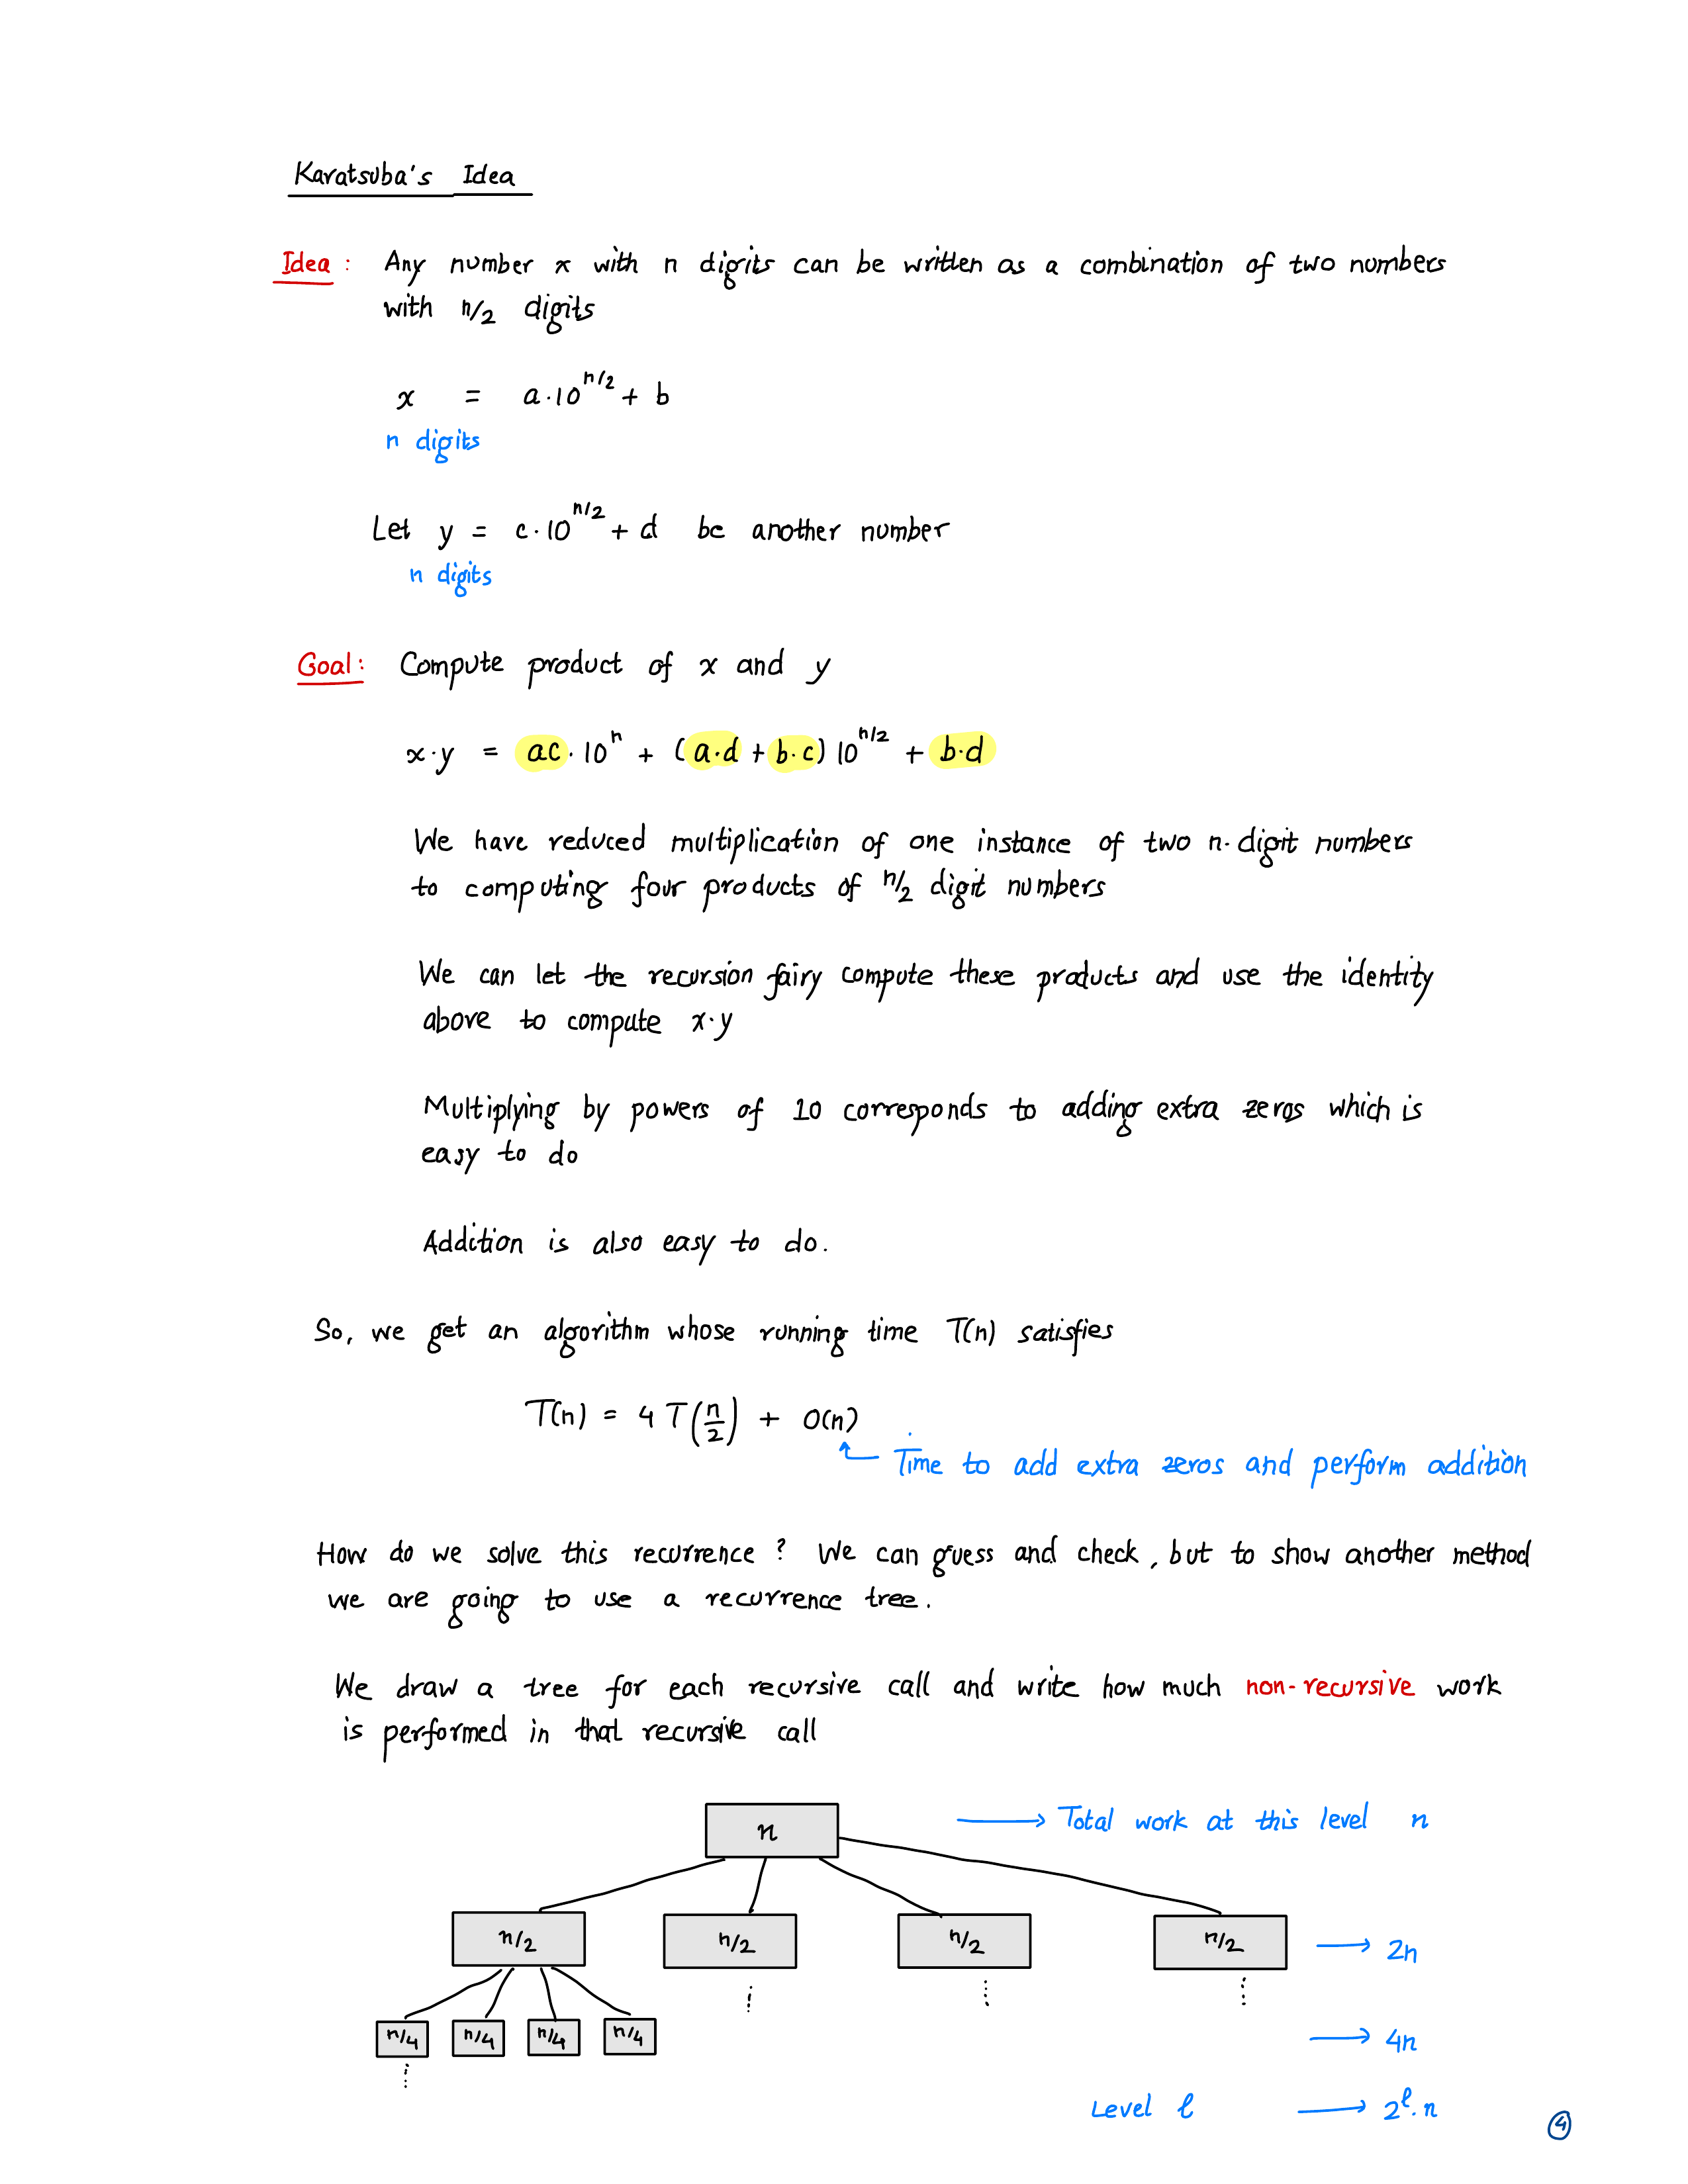 Karatsuba's Idea
Idea : Any number x with n digits can be written as a combination of two numbers
with n/2 digits
x = a·10^{n/2} + b
n digits
Let y = c·10^{n/2} + d be another number
n digits
Goal: Compute product of x and y
x·y = ac·10^n + (a·d + b·c) 10^{n/2} + b·d
We have reduced multiplication of one instance of two n-digit numbers
to computing four products of n/2 digit numbers
We can let the recursion fairy compute these products and use the identity
above to compute x·y
Multiplying by powers of 10 corresponds to adding extra zeros which is
easy to do
Addition is also easy to do.
So, we get an algorithm whose running time T(n) satisfies
T(n) = 4 T(n/2) + O(n)
Time to add extra zeros and perform addition
How do we solve this recurrence ? We can guess and check, but to show another method
we are going to use a recurrence tree.
We draw a tree for each recursive call and write how much non-recursive work
is performed in that recursive call
n → Total work at this level n
n/2 n/2 n/2 n/2 → 2n
n/4 n/4 n/4 n/4 → 4n
Level ℓ → 2^ℓ·n
4